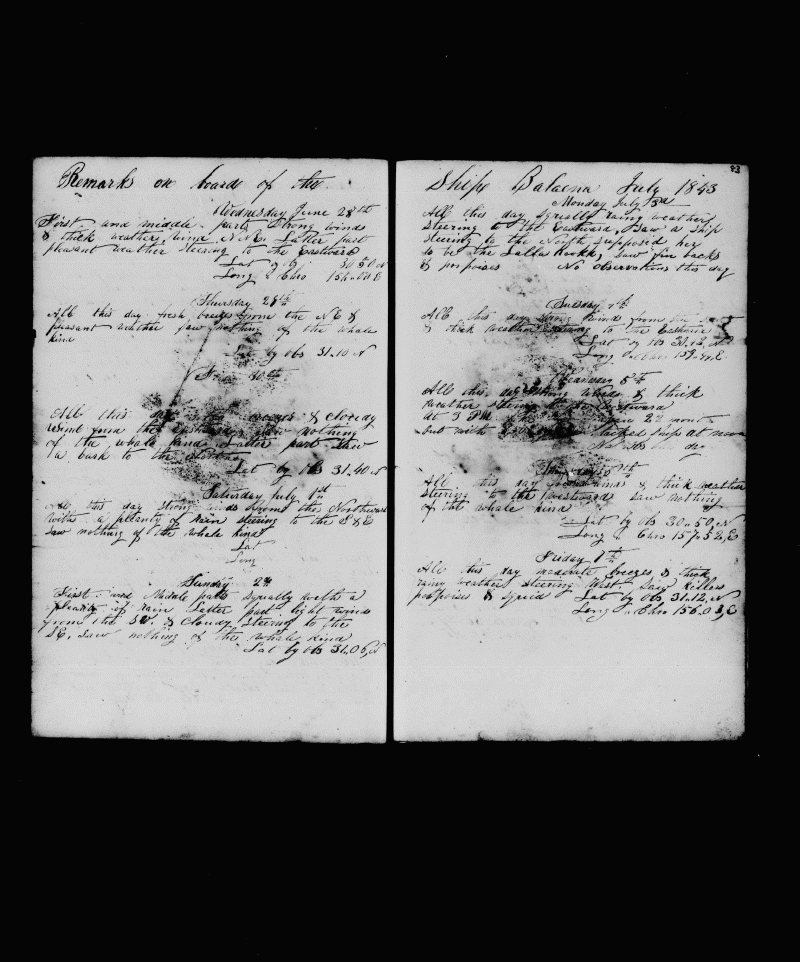 Remarks on board of the
Wednesday June 28th
First and middle parts Strong winds
& thick weather, wind N.N.E. Latter part
pleasant weather steering to the Eastward
Lat by 30.50 N
Long Chro 154.00 E
Thursday 29th
All this day fresh breezes from the N E &
pleasant weather saw nothing of the whale
kind
Lat by Obs 31.10 N
30th
All this day breezes & cloudy
wind from the saw nothing
of the whale kind Latter part Saw
a bark to the
Lat by Obs 31.40 N
Saturday July 1st
All this day strong winds from the Northward
with a plenty of rain steering to the S & E
Saw nothing of the whale kind
Lat
Long
Sunday 2d
First and Middle parts Squally with a
plenty of rain Latter part light winds
from the SW. & Cloudy steering to the
SE. saw nothing of the whale kind
Lat by Obs 31.05 N
93
Ship Balaena July 1843
Monday July 3rd
All this day Squally rainy weather
steering to the Eastward, Saw a ship
steering to the North supposed her
to be the Lalla Rookh, Saw fin backs
& porpoises No Observations this day
Tuesday 4th
All this day strong winds from the
& thick weather steering to the Eastward
Lat by Obs 31.12 N
Long Chro 159. E
5th
All this day strong winds & thick
weather Steering Eastward
At 3 PM 22 mont
but with tacked ship at
Thursday 6th
All this day winds & thick weather
steering to the Westward saw nothing
of the whale kind
Lat by Obs 30.50, N
Long Chro 157.52, E
Friday 7th
All this day moderate breezes & thick
rainy weather, steering West. Saw killers
porpoises & squid Lat by Obs 31.12, N
Long Chro 156.03, E